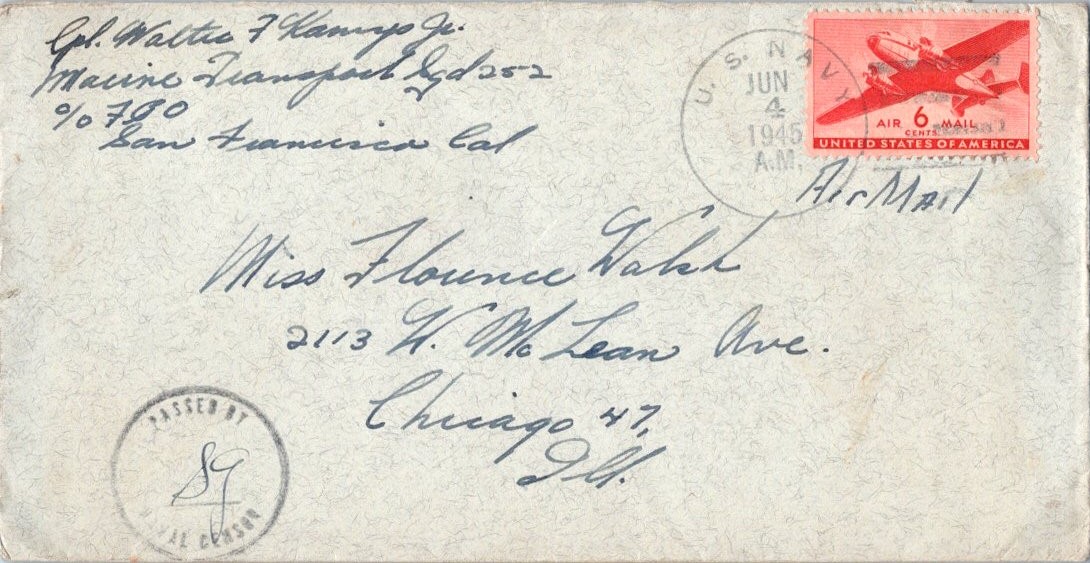 Cpl. Walter F Kamys Jr.
Marine Transport Sqd 252
c/o FPO
San Francisco Cal
U. S. NAVY
JUN
4
1945
A.M.
AIR 6 MAIL
CENTS
UNITED STATES OF AMERICA
Air Mail
Miss Florence Walsh
2113 W. McLean Ave.
Chicago 47,
Ill.
PASSED BY
NAVAL CENSOR